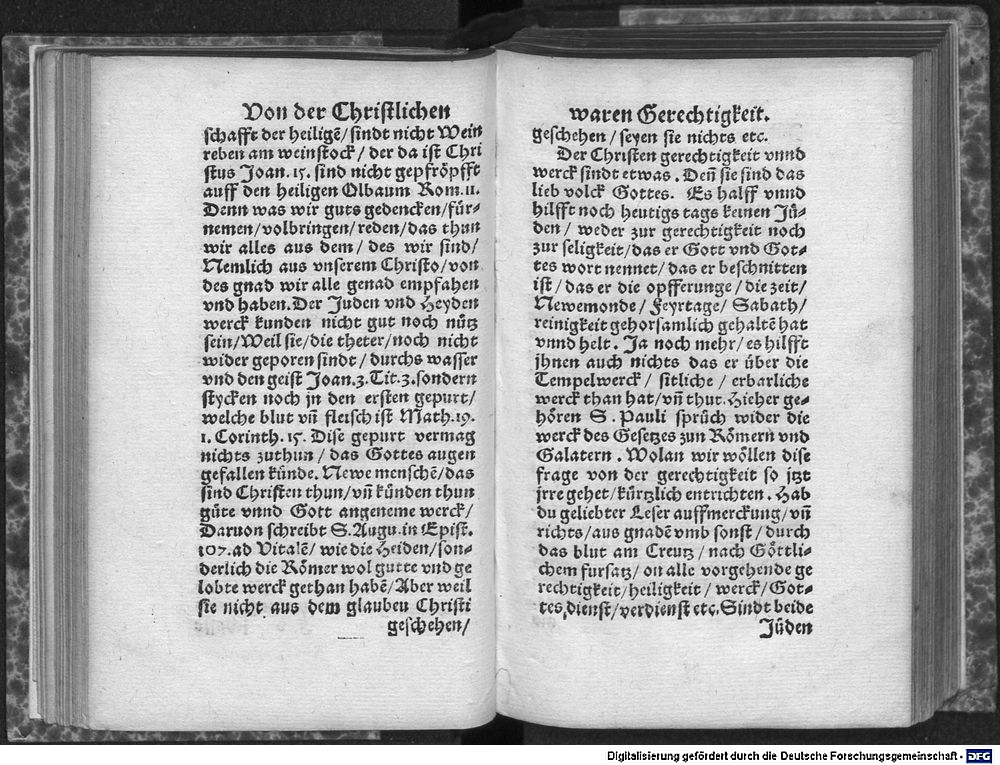 Von der Christlichen
schafft der heiligẽ/ sindt nicht Wein
reben am weinstock/ der da ist Chri
stus Joan. 15. sind nicht gepfröpfft
auff den heiligen Olbaum Rom. 11.
Denn was wir guts gedencken/für-
nemen/volbringen/reden/das thun
wir alles aus dem/ des wir sind/
Nemlich aus vnserem Christo/von
des gnad wir alle genad empfahen
vnd haben. Der Juden vnd Heyden
werck kunden nicht gut noch nütz
sein/Weil sie/die theter/noch nicht
wider geporen sindt/ durchs wasser
vnd den geist Joan. 3. Tit. 3. sondern
stycken noch jn den ersten gepurt/
welche blut vñ fleisch ist Math. 19.
1. Corinth. 15. Dise gepurt vermag
nichts zuthun/ das Gottes augen
gefallen künde. Newe menschẽ/das
sind Christen thun/vñ künden thun
güte vnnd Gott angeneme werck/
Daruon schreibt S. Augu. in Epist.
107. ad Vitalẽ/ wie die Heiden/son-
derlich die Römer wol gutte vnd ge
lobte werck gethan habẽ/Aber weil
sie nicht aus dem glauben Christi
geschehen/
waren Gerechtigkeit.
geschehen/ seyen sie nichts etc.
Der Christen gerechtigkeit vnnd
werck sindt etwas. Deñ sie sind das
lieb volck Gottes. Es halff vnnd
hilfft noch heutigs tags keinen Jü-
den/ weder zur gerechtigkeit noch
zur seligkeit/das er Gott vnd Got-
tes wort nennet/das er beschnitten
ist/ das er die opfferunge/ die zeit/
Newemonde/ Feyrtage/ Sabath/
reinigkeit gehorsamlich gehaltẽ hat
vnnd helt. Ja noch mehr/es hilfft
jhnen auch nichts das er über die
Tempelwerck/ sitliche/ erbarliche
werck than hat/vñ thut. Hieher ge-
hören S. Pauli sprüch wider die
werck des Gesetzes zun Römern vnd
Galatern. Wolan wir wöllen dise
frage von der gerechtigkeit so jtzt
jrre gehet/kürtzlich entrichten. Hab
du geliebter Leser auffmerckung/vñ
richts/aus gnadẽ vmb sonst/ durch
das blut am Creutz/nach Göttli-
chem fursatz/on alle vorgehende ge
rechtigkeit/heiligkeit/ werck/Got-
tes dienst/verdienst etc. Sindt beide
Jüden
Digitalisierung gefördert durch die Deutsche Forschungsgemeinschaft - DFG